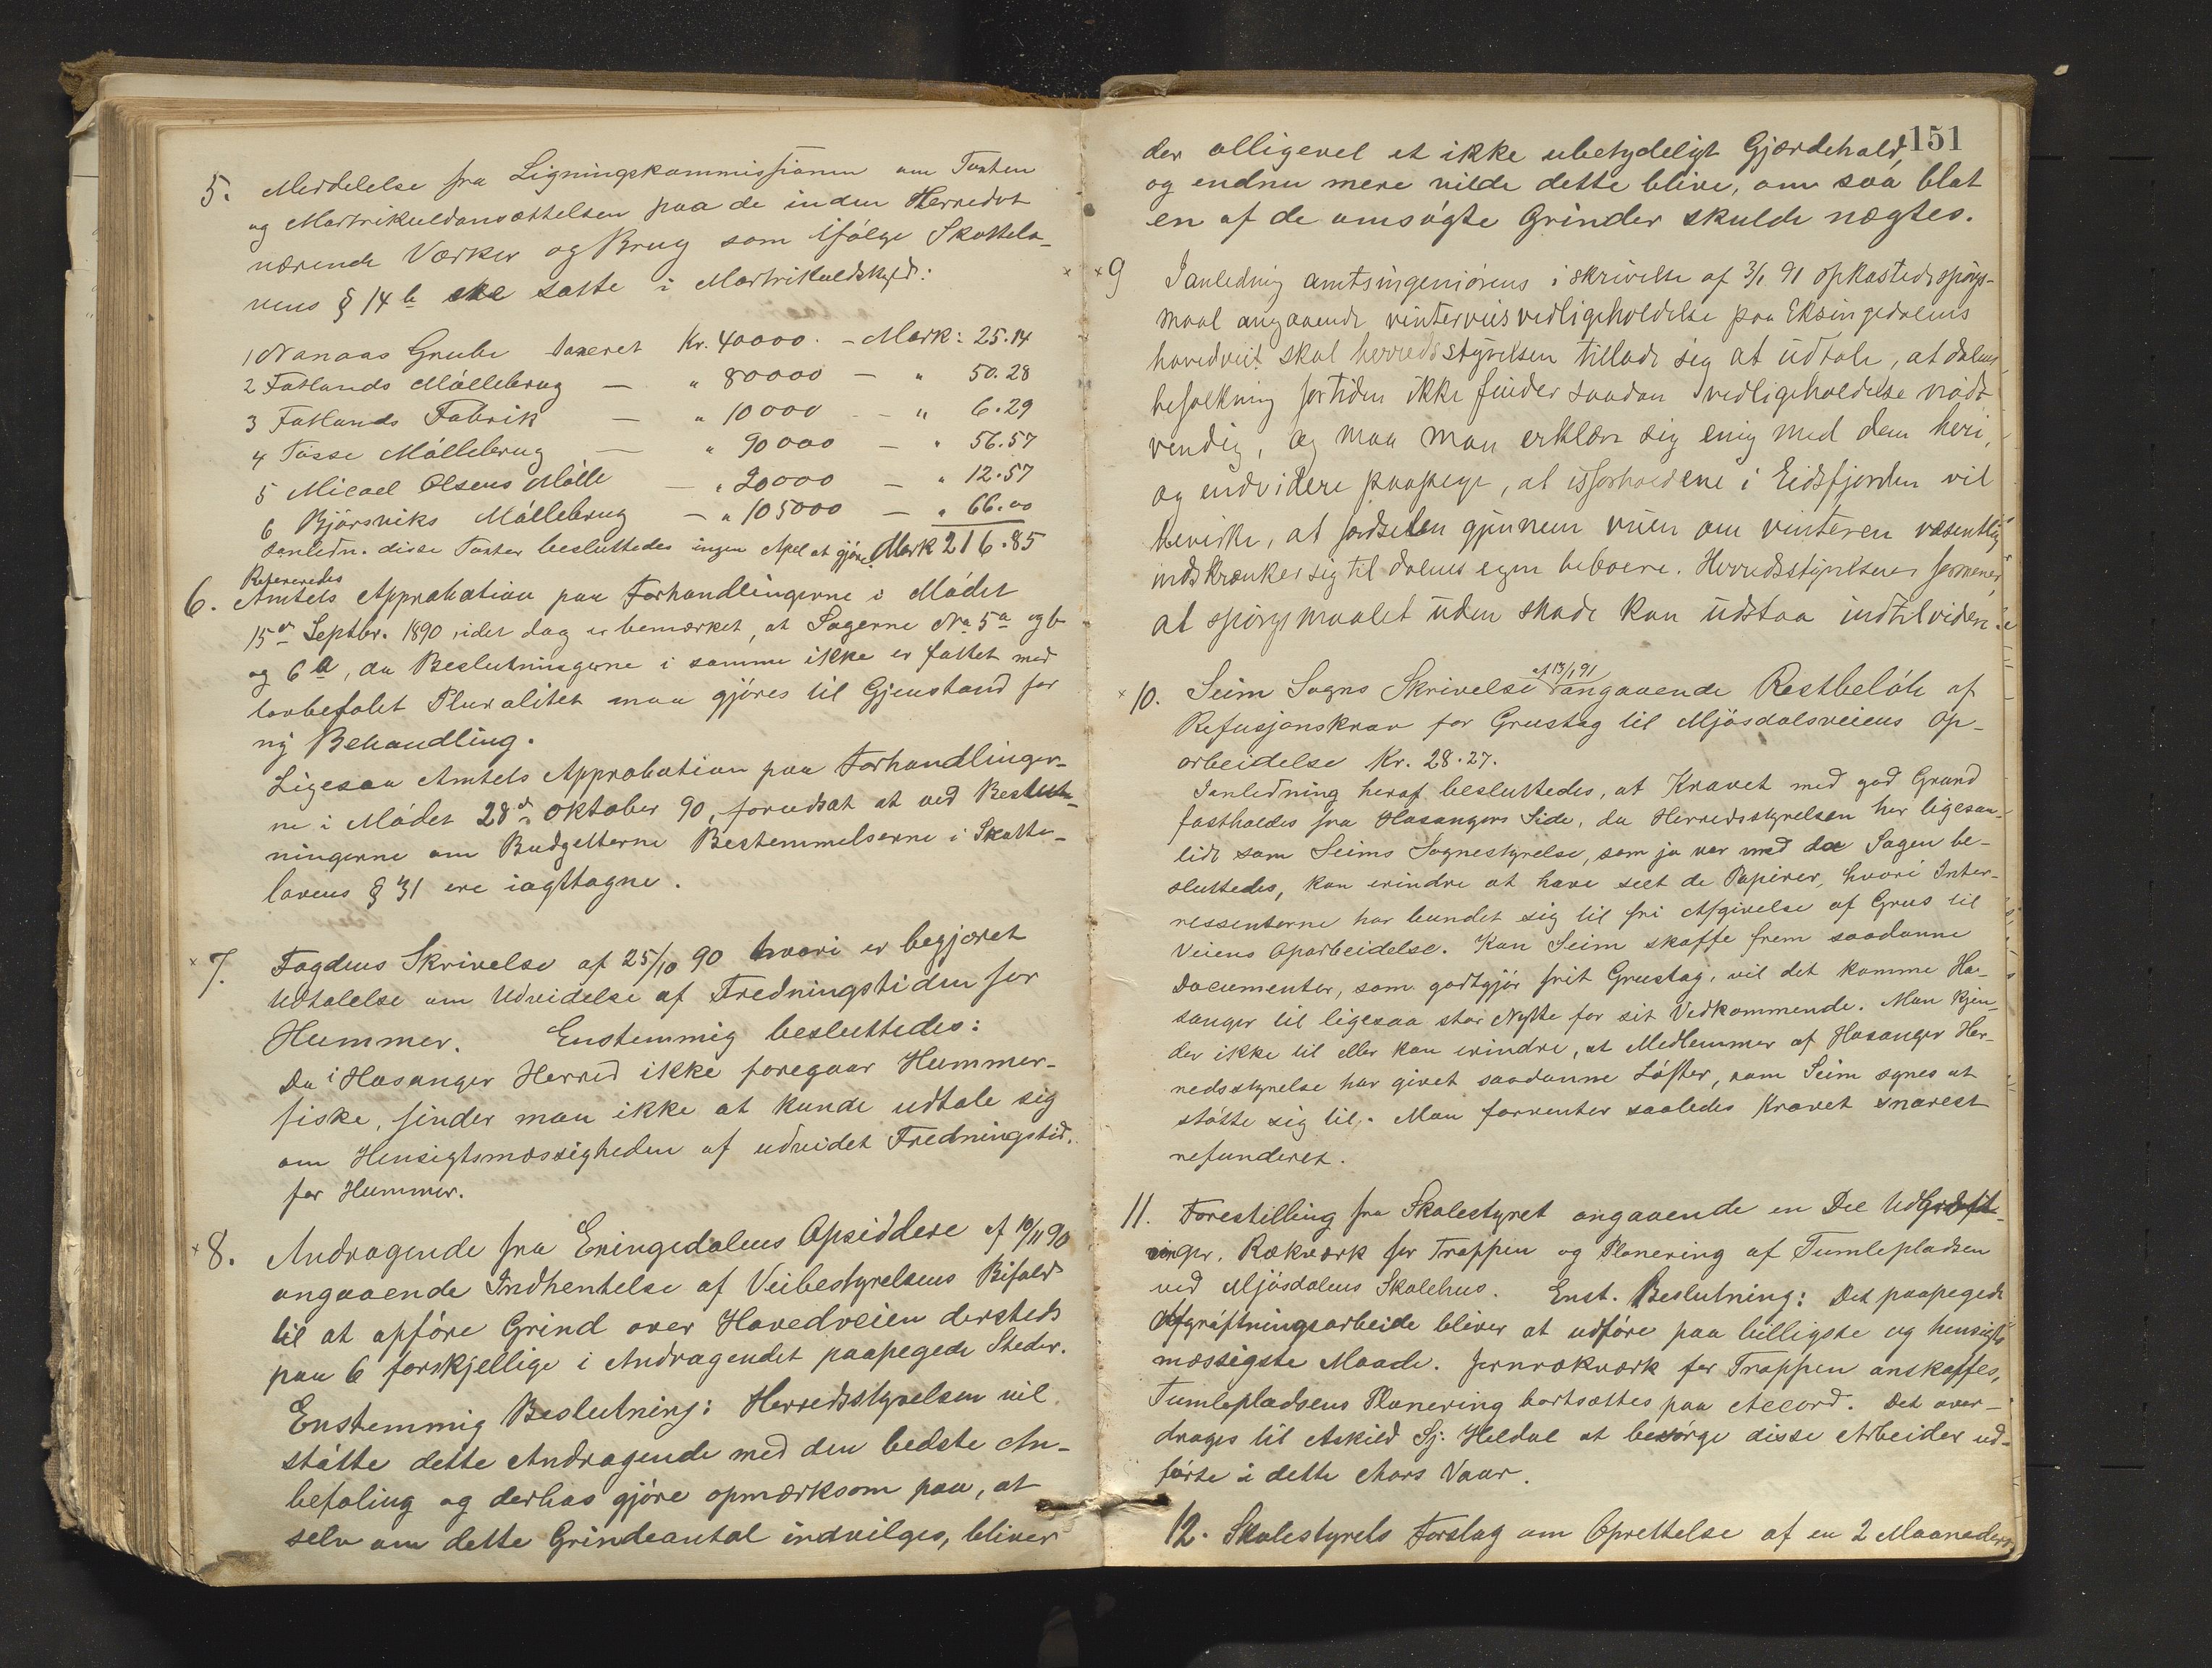 5. Meddelelse fra Ligningskommissionen om Taxten
og Martrikuldansættelsen paa de inden Herredet
værende Værker og Brug som ifølge Skattelo-
vens § 14 b ske satte i Martrikuldskyld:
1 Nanaas Grube taxeret Kr. 40000. - Mark: 25.14
2 Fatlands Møllebrug — " 80000 — " 50.28
3 Fatlands Fabrik — " 10000 - — " 6.29
4 Tøsse Møllebrug — " 90000 — " 56.57
5 Micael Olsens Mølle — " 20000 — " 12.57
6 Bjørsviks Møllebrug — " 105000 — " 66.00
Ianledn. disse Taxter besluttedes ingen Apel at gjøre. Mark 216.85
Refereredes
6. Amtets Approbation paa Forhandlingerne i Mødet
15de Septbr. 1890 idet dog er bemærket, at Sagerne No 5a og b
og 6 a, da Beslutningerne i samme ikke er fattet med
lovbefalet Pluralitet maa gjøres til Gjenstand for
ny Behandling.
Ligesaa Amtets Approbation paa Forhandlinger-
ne i Mødet 28de Oktober 90, forudsat at ved Beslut-
ningerne om Budgetterne Bestemmelserne i Skatte-
lovens § 31 ere iagttagne.
× 7. Fogdens Skrivelse af 25/10 90 hvori er begjæret
Udtalelse om Udvidelse af Fredningstiden for
Hummer. Enstemmig besluttedes:
Da i Hosanger Herred ikke foregaar Hummer-
fiske, finder man ikke at kunde udtale sig
om Hensigtsmæssigheden af udvidet Fredningstid
for Hummer.
× 8. Andragende fra Exingedalens Opsiddere af 10/11 90
angaaende Indhentelse af Veibestyrelsens Bifald
til at opføre Grind over Hovedveien dersteds
paa 6 forskjellige i Andragendet paapegede Steder.
Enstemmig Beslutning: Herredsstyrelsen vil
støtte dette Andragende med den bedste An-
befaling og derhos gjøre opmærksom paa, at
selv om dette Grindeantal indvilges, bliver
151
der alligevel et ikke ubetydeligt Gjærdehold,
og endnu mere vilde dette blive, om saa blot
en af de omsøgte Grinder skulde nægtes.
× 9 Ianledning amtsingeniørens i skrivelse af 3/1 91 opkastede spørgs-
maal angaaende vinterveisvedligeholdelse paa Eksingedalens
hovedvei skal herredsstyrelsen tillade sig at udtale, at dalens
befolkning fortiden ikke finder saadan vedligeholdelse nødt-
vendig, og maa man erklære sig enig med dem heri,
og endvidere paapege, at isforholdene i Eidsfjorden vil
bevirke, at færdselen gjennem veien om vinteren væsentlig
indskrænker sig til dalens egne beboere. Herredsstyrelsen formener
at spørgsmaalet uden skade kan udstaa indtilvidere
× 10. Seim Sogns Skrivelse af 13/1 91 angaaende Restbeløb af
Refusjonskrav for Grustag til Mjøsdalsveiens Op-
arbeidelse Kr. 28.27.
Ianledning heraf besluttedes, at Kravet med god Grund
fastholdes fra Hosangers Side, da Herredsstyrelsen her ligesaa
lidt som Seims Sognestyrelse, som jo var med da Sagen be-
sluttedes, kan erindre at have seet de Papirer, hvori Inter-
ressenterne har bundet sig til fri Afgivelse af Grus til
Veiens Oparbeidelse. Kan Seim skaffe frem saadanne
Documenter, som godtgjør frit Grustag, vil det komme Ho-
sanger til ligesaa stor Nytte for sit Vedkommende. Man kjen-
der ikke til eller kan erindre, at Medlemmer af Hosanger Her-
redsstyrelse har givet saadanne Løfter, som Seim synes at
støtte sig til. Man forventer saaledes Kravet snarest
refunderet.
11. Forestilling fra Skolestyret angaaende en Del Udgrøft-
ninger. Rækværk for Trappen og Planering af Tumlepladsen
ved Mjøsdalens Skolehus. Enst. Beslutning: Det paapegede
Afgrøftningsarbeide bliver at udføre paa billigste og hensigts
mæssigste Maade. Jernrækværk for Trappen anskaffes,
Tumlepladsens Planering bortsættes paa Accord. Det over-
drages til Askild Sj. Heldal at besørge disse Arbeider ud-
førte i dette Aars Vaar.
12. Skolestyrets Forslag om Oprettelse af en 2 Maaneders